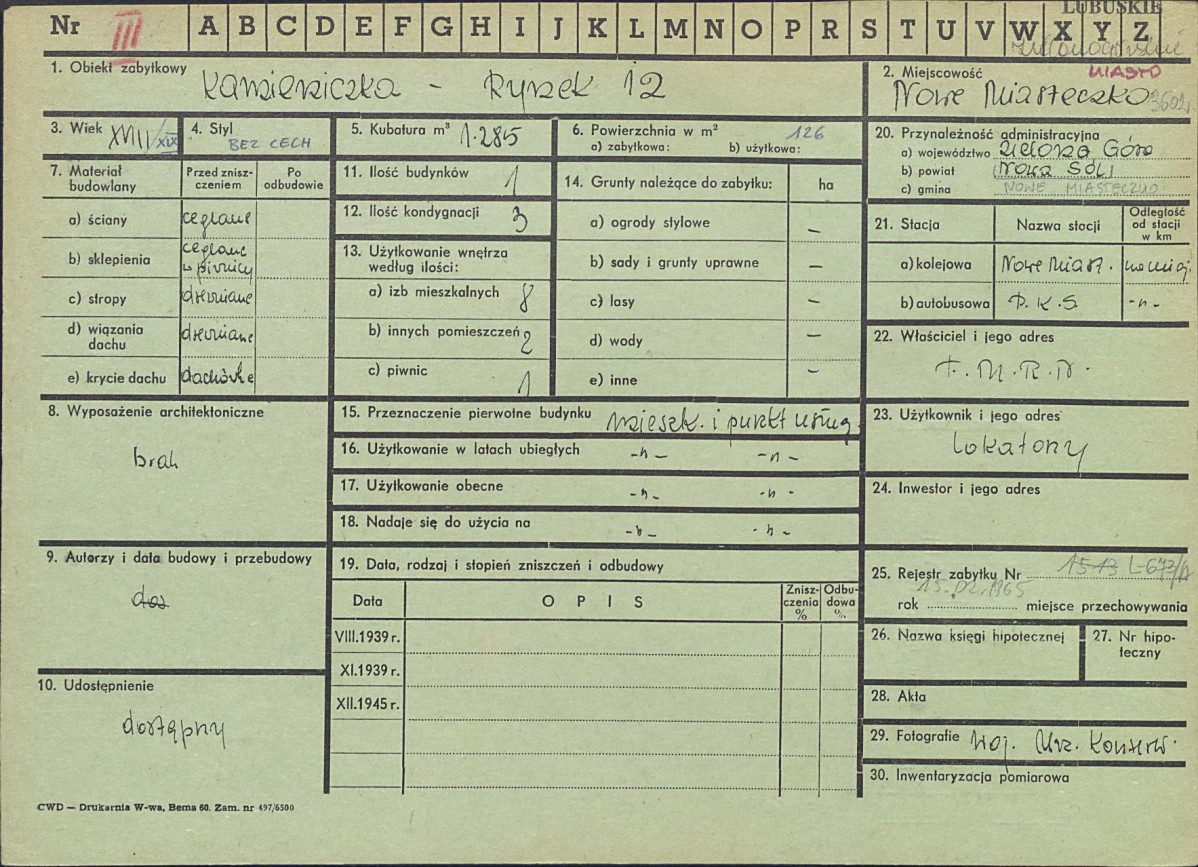 LUBUSKIE
Nr III A B C D E F G H I J K L M N O P R S T U V W X Y Z
MIASTO
1. Obiekt zabytkowy Kamieniczka - Rynek 12
2. Miejscowość
Nowe Miasteczko 3602
3. Wiek XVIII/XIX
4. Styl
BEZ CECH
5. Kubatura m³ 1.285
6. Powierzchnia w m² 126
a) zabytkowa: b) użytkowa:
7. Materiał budowlany
Przed znisz-
czeniem
Po
odbudowie
a) ściany ceglane
b) sklepienia ceglane
w piwnicy
c) stropy drewniane
d) wiązania
dachu drewniane
e) krycie dachu dachówka
8. Wyposażenie architektoniczne
brak
9. Autorzy i data budowy i przebudowy
10. Udostępnienie
dostępny
11. Ilość budynków 1
12. Ilość kondygnacji 3
13. Użytkowanie wnętrza
według ilości:
a) izb mieszkalnych 8
b) innych pomieszczeń 2
c) piwnic 1
14. Grunty należące do zabytku: ha
a) ogrody stylowe —
b) sady i grunty uprawne —
c) lasy —
d) wody —
e) inne —
15. Przeznaczenie pierwotne budynku mieszk. i punkt usług.
16. Użytkowanie w latach ubiegłych -"- -"-
17. Użytkowanie obecne -"- -"-
18. Nadaje się do użycia na -"- -"-
19. Data, rodzaj i stopień zniszczeń i odbudowy
Data O P I S
Znisz-
czenia
%
Odbu-
dowa
%
VIII.1939 r.
XI.1939 r.
XII.1945 r.
20. Przynależność administracyjna
a) województwo Zielona Góra
b) powiat Nowa Sól
c) gmina NOWE MIASTECZKO
21. Stacja Nazwa stacji
Odległość
od stacji
w km
a) kolejowa Nowe Miast. na miej.
b) autobusowa P.K.S. -"-
22. Właściciel i jego adres
P.M.R.N.
23. Użytkownik i jego adres
Lokatorzy
24. Inwestor i jego adres
25. Rejestr zabytku Nr 1513 L-673/A
15.02.1965
rok miejsce przechowywania
26. Nazwa księgi hipotecznej
27. Nr hipo-
teczny
28. Akta
29. Fotografie Woj. Urz. Konserw.
30. Inwentaryzacja pomiarowa
CWD — Drukarnia W-wa, Bema 60. Zam. nr 497/6500